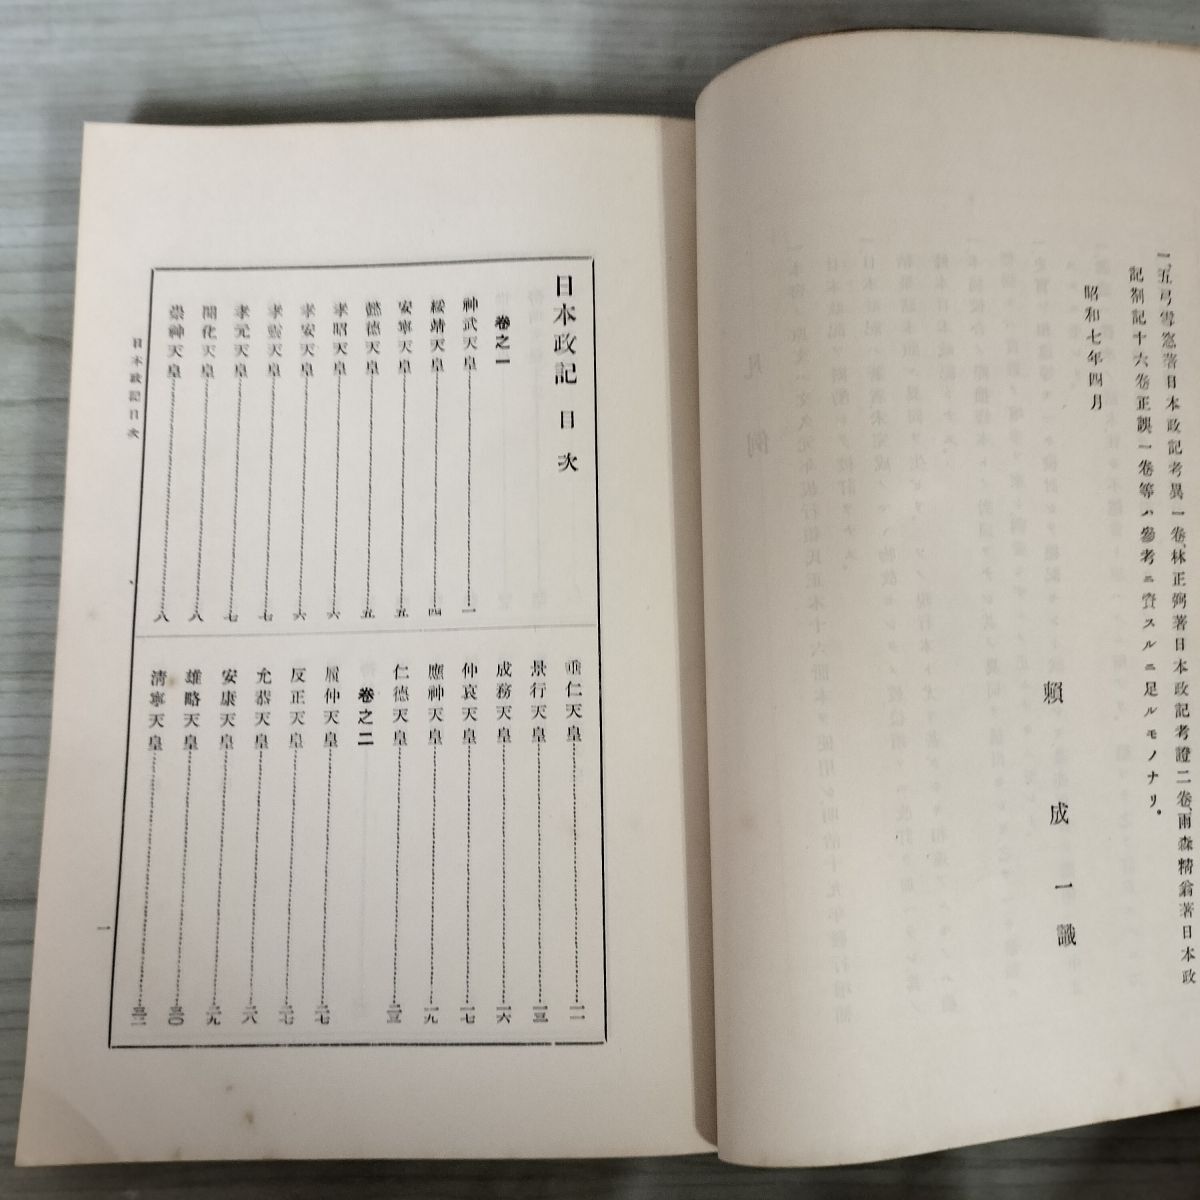 一、五弓雪窓著日本政記考異一卷、林正弼著日本政記考證二卷、雨森精翁著日本政
記劄記十六卷正誤一卷等ハ參考ニ資スルニ足ルモノナリ。
昭和七年四月
賴成一識
日本政記目次
卷之一
神武天皇 一
綏靖天皇 四
安寧天皇 五
懿德天皇 五
孝昭天皇 六
孝安天皇 六
孝靈天皇 七
孝元天皇 七
開化天皇 八
崇神天皇 八
垂仁天皇 一一
景行天皇 一三
成務天皇 一六
仲哀天皇 一七
應神天皇 一九
仁德天皇 二三
卷之二
履仲天皇 二七
反正天皇 二七
允恭天皇 二八
安康天皇 二九
雄略天皇 三〇
淸寧天皇 三二
日本政記目次
一